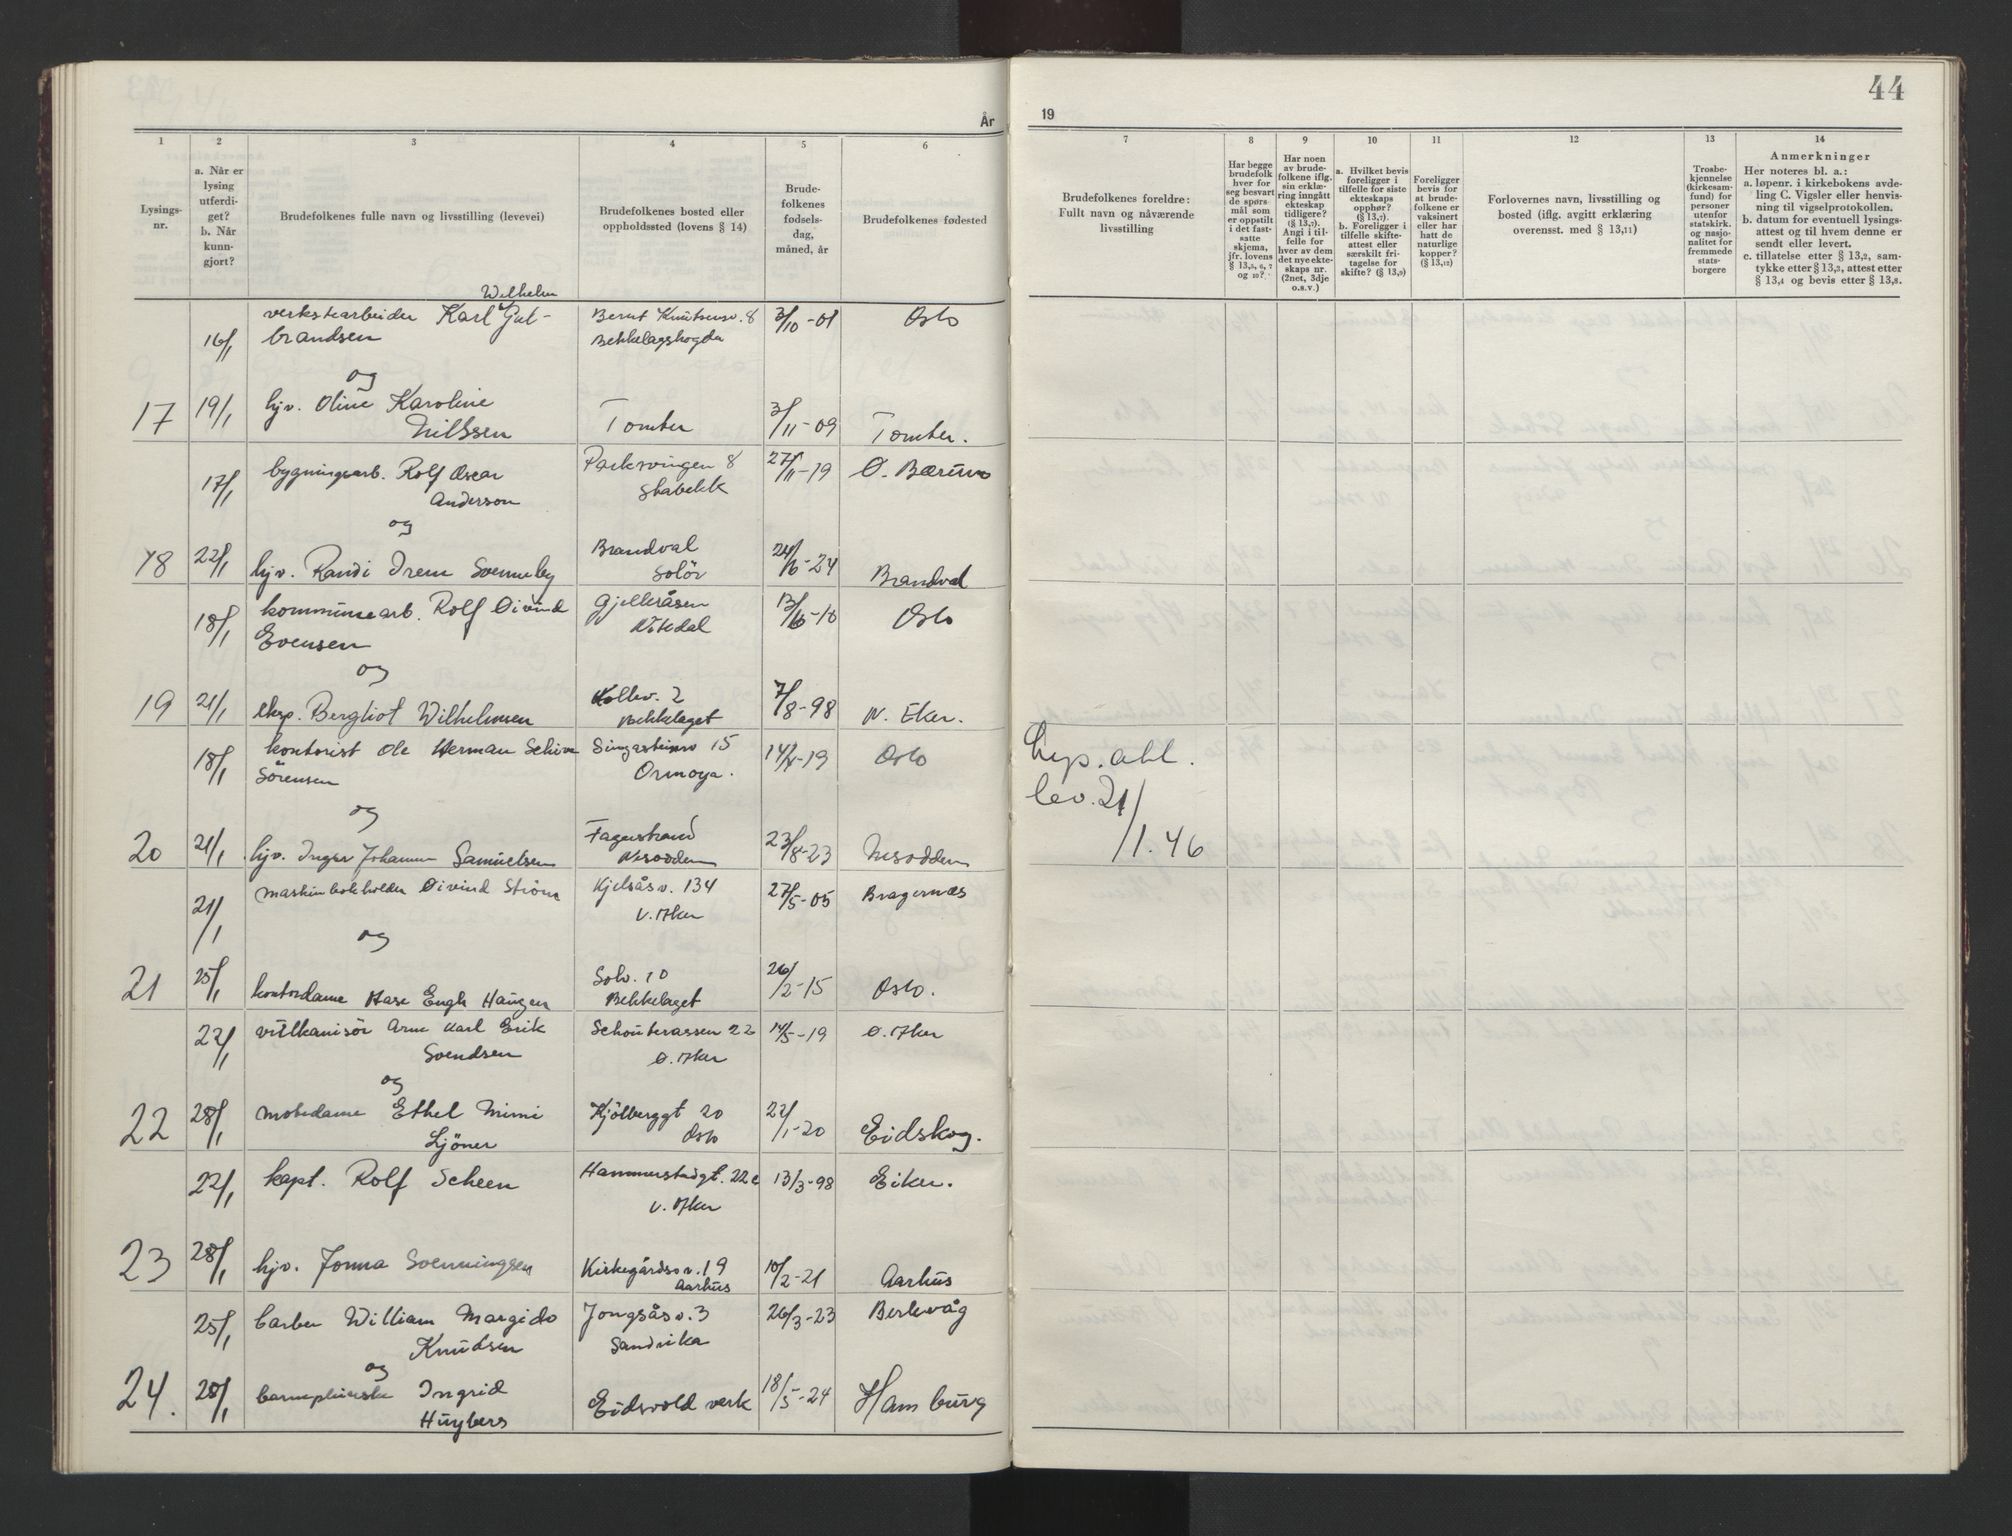 44
År
19
1
2
3
4
5
6
7
8
9
10
11
12
13
14
Lysings-
nr.
a. Når er
lysing
utferdi-
get?
b. Når
kunn-
gjort?
Brudefolkenes fulle navn og livsstilling (levevei)
Brudefolkenes bosted eller
oppholdssted (lovens § 14)
Brude-
folkenes
fødsels-
dag,
måned, år
Brudefolkenes fødested
Brudefolkenes foreldre:
Fullt navn og nåværende
livsstilling
Har begge
brudefolk
hver for
seg besvart
de spørs-
mål som
er oppstilt
i det fast-
satte
skjema,
jfr. lovens
§ 13,5, 6, 7
og 10?
Har noen
av brude-
folkene iflg.
sin erklæ-
ring inngått
ekteskap
tidligere?
(§ 13,7).
Angi i til-
felle for
hver av dem
det nye ekte-
skaps nr.
(2net, 3dje
o.s.v.)
a. Hvilket bevis
foreligger i
tilfelle for siste
ekteskaps
opphør?
(§ 13,7)
b. Foreligger i
tilfelle skifte-
attest eller
særskilt fri-
tagelse for
skifte? (§ 13,9)
Foreligger
bevis for
at brude-
folkene er
vaksinert
eller har
hatt de
naturlige
kopper?
(§ 13,12)
Forlovernes navn, livsstilling og
bosted (iflg. avgitt erklæring
overensst. med § 13,11)
Trosbe-
kjennelse
(kirkesam-
fund) for
personer
utenfor
statskirk.
og nasjo-
nalitet for
fremmede
stats-
borgere
Anmerkninger
Her noteres bl. a.:
a. løpenr. i kirkebokens avde-
ling C. Vigsler eller henvis-
ning til vigselprotokollen.
b. datum for eventuell lysings-
attest og til hvem denne er
sendt eller levert.
c. tillatelse etter § 13,2, sam-
tykke etter § 13,3, attest etter
§ 13,4 og bevis etter § 13,8.
Wilhelm
16/1 verkstearbeider Karl Gul- Bernt Knutsensv. 8 3/10-01 Oslo
brandsen Bekkelagshøgda
og
17 19/1 hjv. Oline Karoline Tomter 3/11-09 Tomter.
Nilssen
17/1 bygningsarb. Rolf Oscar Parksvingen 8 27/11-19 Ø. Bærum
Anderson Stabekk
og
18 22/1 hjv. Randi Irene Svenneby Brandval 24/6-24 Brandval
Solör
18/1 kommunearb. Rolf Øivind Gjelleråsen 13/6-18 Oslo
Evensen Nitedal
og
19 21/1 eksp. Bergliot Wilhelmsen Kollev. 2 7/8-98 N. Eker.
Bekkelaget
18/1 kontorist Ole Herman 15 19 Oslo
Sörensen Ormøya.
og
20 21/1 hjv. Inger Johanne Samuelsen Fagerstrand 23/8-23 Nesodden
Nesodden
Lysn. att.
lev. 21/1.46
21/1 maskinbokholder Øivind Ström Kjelsåsv. 134 27/5-05 Bragernæs
V. Aker
og
21 25/1 kontordame Aase Engh Haugen Solv. 10 26/2-15 Oslo.
Bekkelaget
22/1 vulkanisör Arne Karl Erik Schouterassen 22 14/5-19 Ø. Aker
Svendsen Ø. Aker
og
22 28/1 motedame Ethel Mimi Kjölberggt 20 22/1-20 Eidskog.
Ljöner Oslo
22/1 kapt. Rolf Scheen Hammerstadgt. 22c 13/3-98 Eiker.
V. Aker
23 28/1 hjv. Jonna Svenningsen Kirkegårdsv. 19 10/2-21 Aarhus
Aarhus
25/1 barber William Margido Jongsåsv. 3 26/3-23 Berlevåg
Knudsen Sandvika
og
24. 28/1 barnepleierske Ingrid Eidsvold verk 18/5-24 Hamburg
Huybers